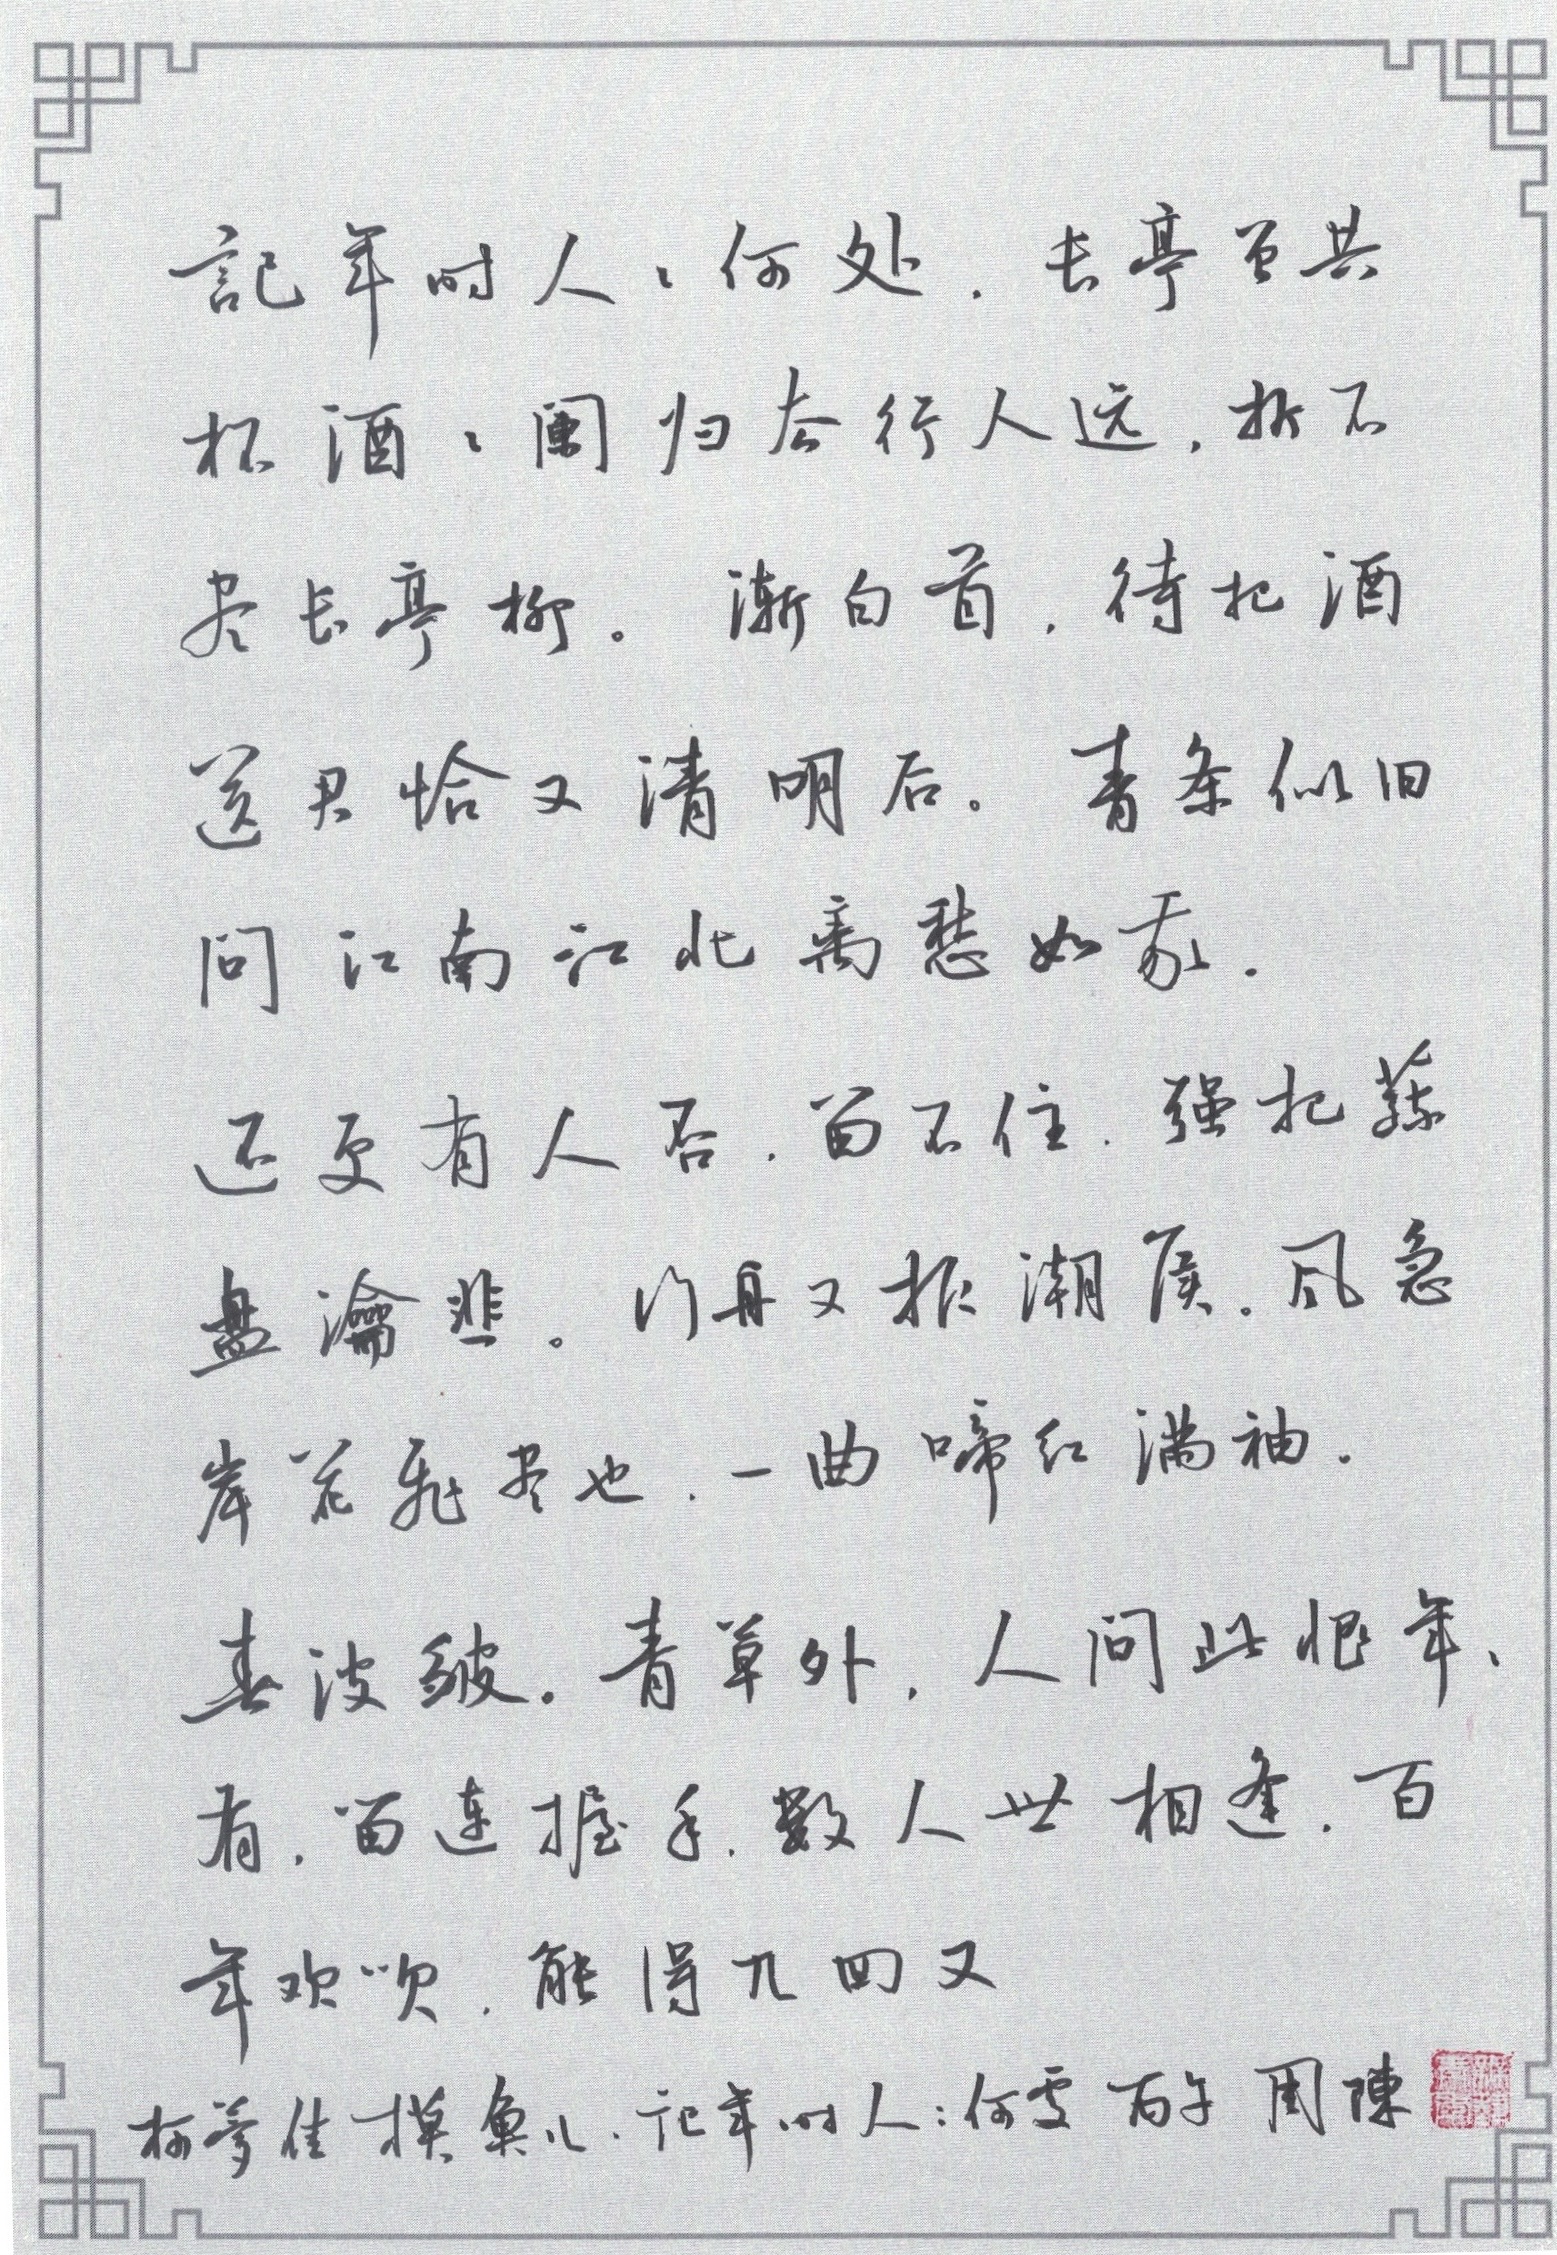 記年时人々何处．长亭曾共
杯酒々阑归去行人远．折不
尽长亭柳。渐白首．待把酒
送君恰又清明后。青条似旧
问江南江北离愁如我．
还更有人否．留不住．强把蔬
盘瀹韭。行舟又报潮候．风急
岸花飛尽也．一曲啼红满袖．
春波皱。青草外．人间此恨年々
有．留连握手．数人世相逢．百
年欢咲．能得几回又
柯夢佳摸魚儿．记年时人:何处 丙午 周陳